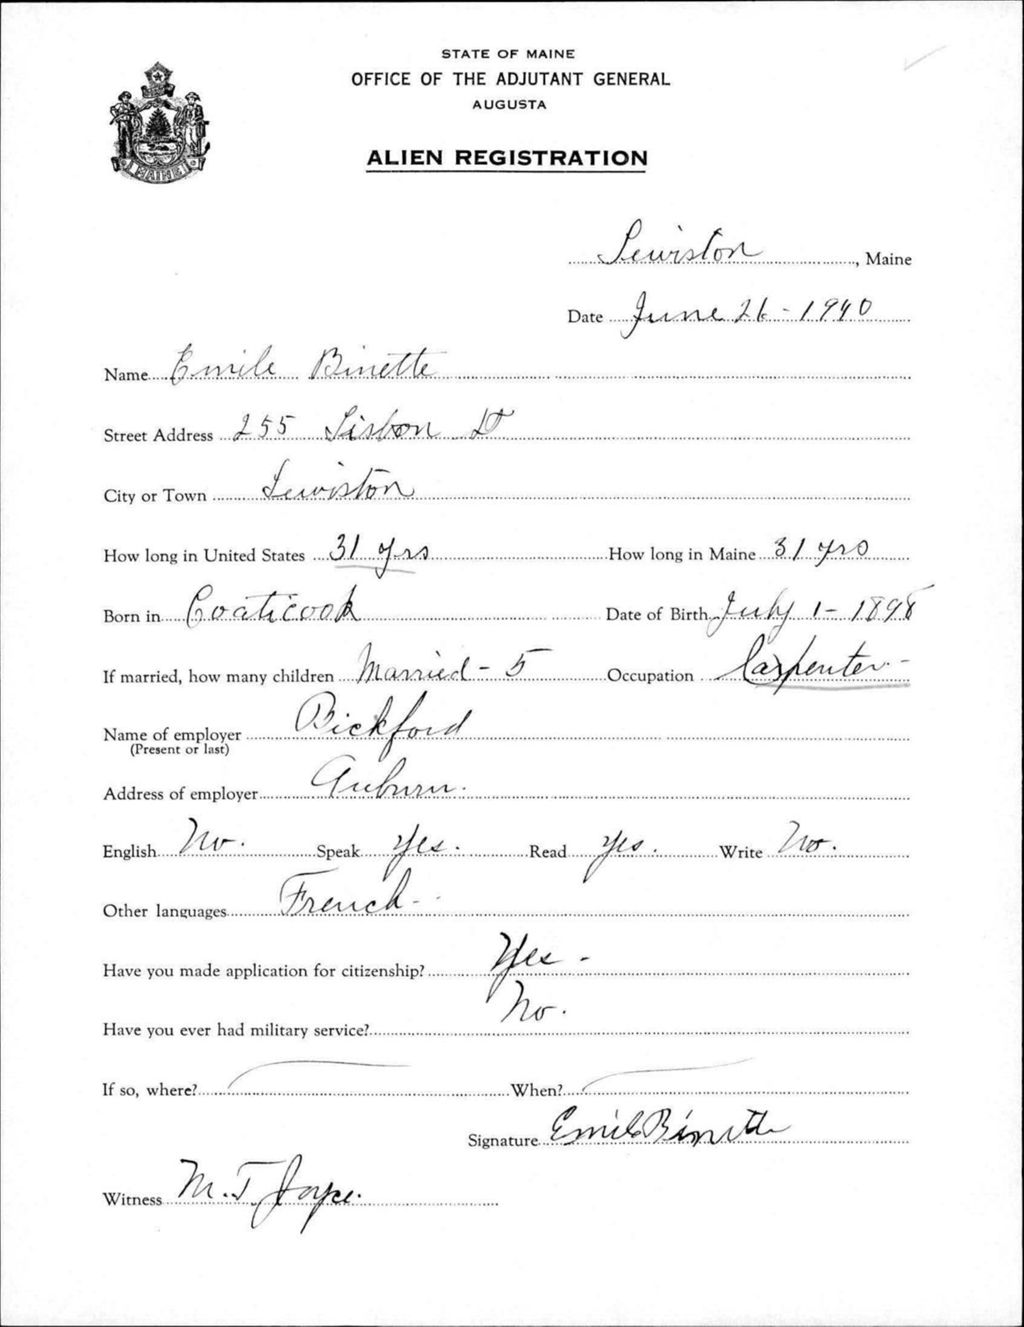 STATE OF MAINE
OFFICE OF THE ADJUTANT GENERAL
AUGUSTA
ALIEN REGISTRATION
MAINE
Lewiston, Maine
Date June 26 - 1940
Name Emile Binette
Street Address 255 Lisbon St
City or Town Lewiston
How long in United States 31 yrs How long in Maine 31 yrs
Born in Coaticook Date of Birth July 1 - 1898
If married, how many children Married - 5 Occupation Carpenter -
Name of employer Bickford
(Present or last)
Address of employer Auburn.
English No. Speak Yes. Read Yes. Write No.
Other languages French -
Have you made application for citizenship? Yes -
Have you ever had military service? No.
If so, where? When?
Signature Emile Binette
Witness M. T. Joyce.